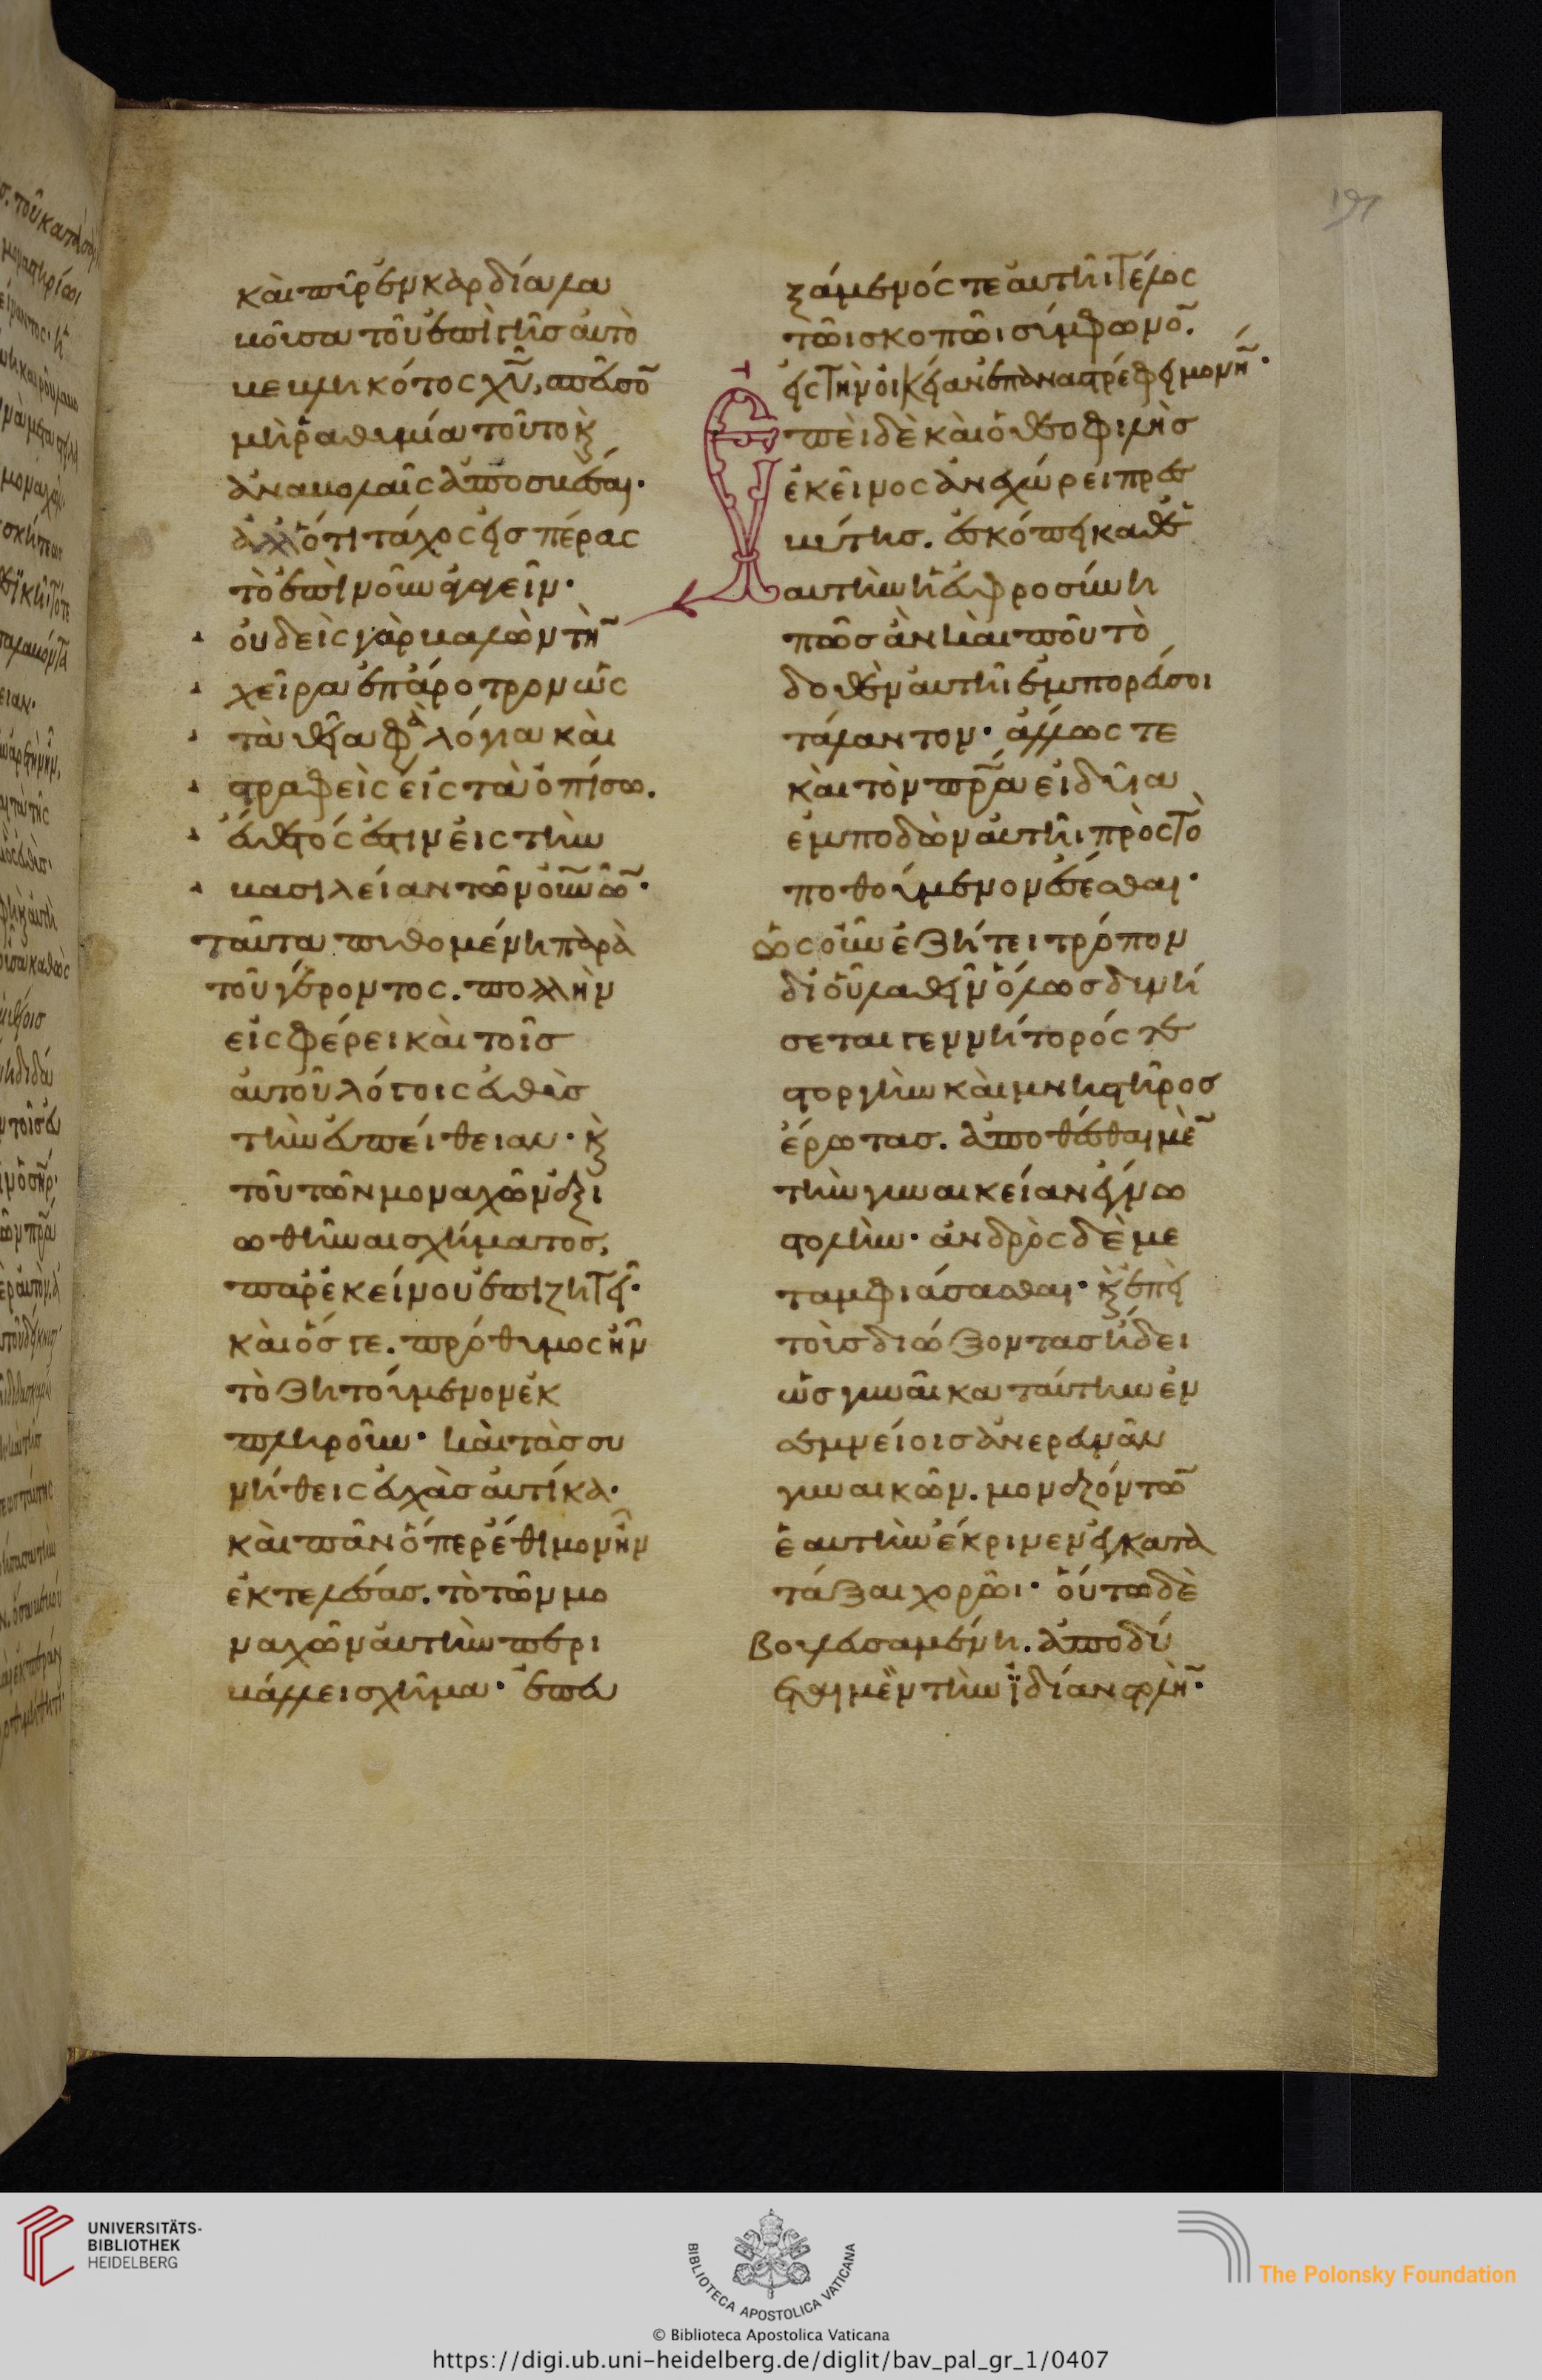 καὶ πῦρ ἐν καρδία λα
βοῦσα τοῦ ἐπὶ γῆς αὐτὸ
βεβληκότος χῦ, σπεῦσον
μὴ ῥαθυμία τοῦτο καὶ
ἀναβολαῖς ἀποσβέσαι·
ἀλλ' ὅτι τάχος εἰς πέρας
τὸ ἐπὶ νοῦν ἀγαγεῖν·
οὐδεὶς γὰρ βαλὼν τὴν
χεῖρα ἐπ' ἄροτρον ὡς
τὰ θεῖα φη λόγια καὶ
στραφεὶς εἰς τὰ ὀπίσω.
εὔθετός ἐστιν εἰς τὴν
βασιλείαν τῶν οὐνῶν·
ταῦτα πυθομένη παρὰ
τοῦ γέροντος. πολλὴν
εἰσφέρει καὶ τοῖς
αὐτοῦ λόγοις εὐθὺς
τὴν εὐπείθειαν· καὶ
τοῦ τῶν μοναχῶν ἀξι
ωθῆναι σχήματος,
παρ' ἐκείνου ἐπιζητεῖ·
καὶ ὅς γε. πρόθυμος ἦν
τὸ ζητούμενον ἐκ
πληροῦν· καὶ τὰς συ
νήθεις εὐχὰς αὐτίκα·
καὶ πᾶν ὅπερ ἔθιμον ἦν
ἐκτελέσας. τὸ τῶν μο
ναχῶν αὐτὴν περι
βάλλει σχῆμα· ἐπευ
ξάμενός τε αὐτῆι τέλος
τῶι σκοπῶι σύμφωνον.
εἰς τὴν οἰκείαν ἐπαναστρέφει μονήν·
Ἐπεὶ δὲ καὶ ὁ θεοφιλὴς
ἐκεῖνος ἀνεχώρει πρεσ
βύτης. ἐσκόπει καθ' ἑ
αυτὴν ἡ εὐφροσύνη
πῶς ἂν καὶ ποῦ τὸ
δοθὲν αὐτῆι ἐμπορεύσοι
τάλαντον· ἄλλως τε
καὶ τὸν πρα εἰδυῖα
ἐμποδὼν αὐτῆι πρὸς τὸ
ποθούμενον ἔσεσθαι·
ὡς οὖν ἐζήτει τρόπον
δι' οὗ λαθεῖν ὅλως δυνή
σεται γεννήτορός τε
στοργὴν καὶ μνηστῆρος
ἔρωτας. ἀποθέσθαι μὲν
τὴν γυναικείαν ἔγνω
στολὴν· ἀνδρὸς δὲ με
ταμφιάσασθαι· καὶ ἐπεὶ
τοὺς διώξοντας ἤδει
ὡς γυναῖκα ταύτην ἐν
σεμνείοις ἀνερευνᾶν
γυναικῶν. μοναζόντων
ἑαυτὴν ἔκρινεν ἐγκατα
τάξαι χορῶι· οὕτω δὲ
βουλευσαμένη. ἀποδύ
εται μὲν τὴν ἰδίαν στολὴν·
UNIVERSITÄTS-
BIBLIOTHEK
HEIDELBERG
BIBLIOTECA APOSTOLICA VATICANA
The Polonsky Foundation
© Biblioteca Apostolica Vaticana
https://digi.ub.uni-heidelberg.de/diglit/bav_pal_gr_1/0407